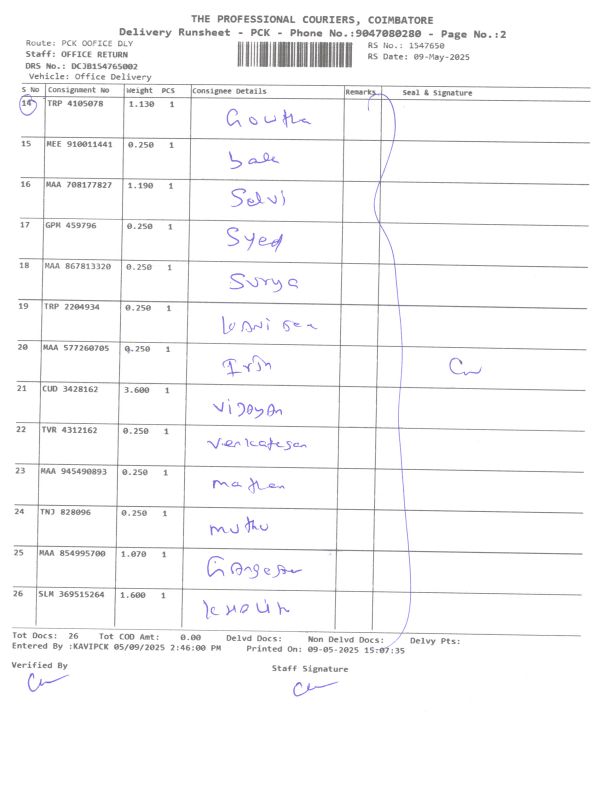 THE PROFESSIONAL COURIERS, COIMBATORE
Delivery Runsheet - PCK - Phone No.:9047080280 - Page No.:2
Route: PCK OOFICE DLY
RS No.: 1547650
Staff: OFFICE RETURN
RS Date: 09-May-2025
DRS No.: DCJB154765002
Vehicle: Office Delivery
S No Consignment No Weight PCS Consignee Details Remarks Seal & Signature
14 TRP 4105078 1.130 1
15 MEE 910011441 0.250 1
bala
16 MAA 708177827 1.190 1
Selvi
17 GPM 459796 0.250 1
Syed
18 MAA 867813320 0.250 1
Surya
19 TRP 2204934 0.250 1
20 MAA 577260705 0.250 1
21 CUD 3428162 3.600 1
Vijayan
22 TVR 4312162 0.250 1
Venkatesan
23 MAA 945490893 0.250 1
24 TNJ 828096 0.250 1
muthu
25 MAA 854995700 1.070 1
26 SLM 369515264 1.600 1
Tot Docs: 26 Tot COD Amt: 0.00 Delvd Docs: Non Delvd Docs: Delvy Pts:
Entered By :KAVIPCK 05/09/2025 2:46:00 PM Printed On: 09-05-2025 15:07:35
Verified By
Staff Signature